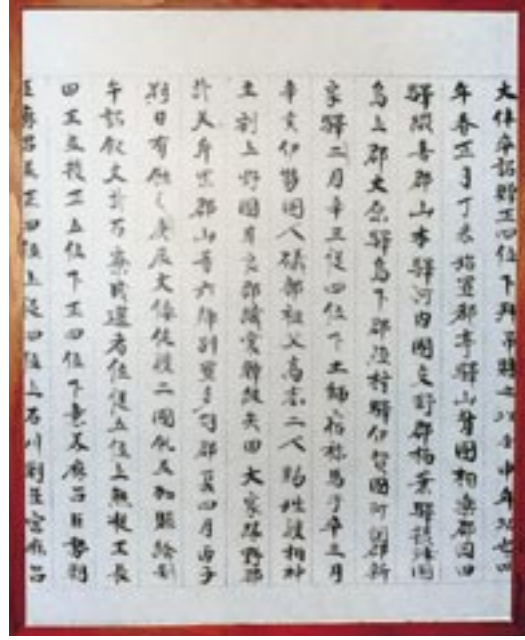 大伴卒詔贈正四位下拜吊賻之以壬申年功也四
年春正月丁未始置都亭驛山背國相樂郡岡田
驛綴喜郡山本驛河内國交野郡楠葉驛攝津國
嶋上郡大原驛嶋下郡殖村驛伊賀國阿閇郡新
家驛二月辛丑從四位下土師宿祢馬手卒三月
辛亥伊勢國人礒部祖父高志二人賜姓渡相神
主割上野國甘良郡織裳韓級矢田大家緑野郡
武美片岡郡山等六郷別置多胡郡夏四月丙子
朔日有蝕之庚辰大倭佐渡二國飢並加賑給壬
午詔叙文武百寮成選者位從五位上無枝王長
田王並授正五位下正四位下意美麻呂巨勢朝
臣麻呂並正四位上從四位上石川朝臣宮麻呂